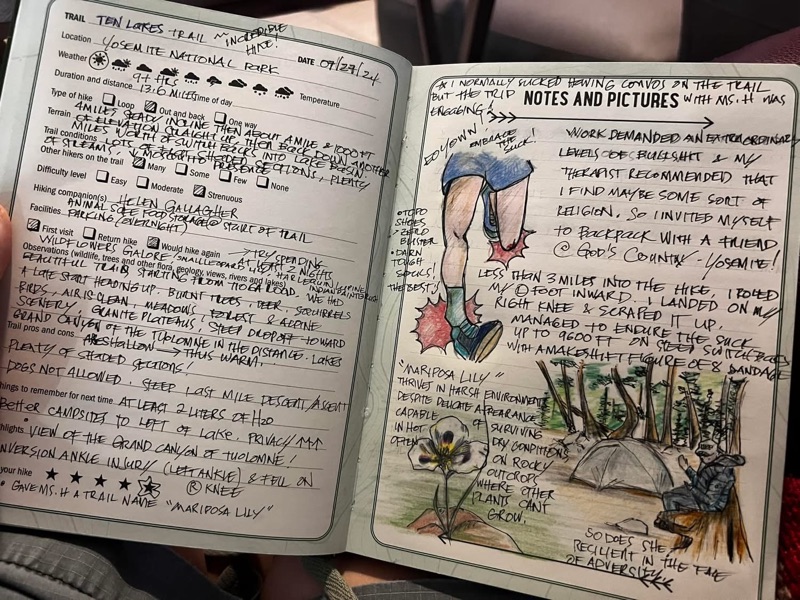 TRAIL TEN LAKES TRAIL ~ INCREDIBLE HIKE!
Location YOSEMITE NATIONAL PARK DATE 09/27/24
Weather
Temperature
Duration and distance 9+ HRS 13.6 MILES Time of day
Type of hike Loop Out and back One way
Terrain 4 MILES STEADY INCLINE THEN ABOUT A MILE & 1000 FT
OF ELEVATION STRAIGHT UP THEN BACK DOWN ANOTHER
MILES WORTH OF SWITCH BACKS INTO LAKE BASIN.
Trail conditions LOTS OF SHADED SECTIONS, PLENTY
OF STREAMS & MOSQUITO PRESENCE
Other hikers on the trail Many Some Few None
Difficulty level Easy Moderate Strenuous
Hiking companion(s) HELEN GALLAGHER
ANIMAL SAFE FOOD STORAGE @ START OF TRAIL
Facilities PARKING (OVERNIGHT)
First visit Return hike Would hike again → TRY SPENDING AT LEAST 2 NIGHTS
WILDFLOWERS GALORE/
Observations (wildlife, trees and other flora, geology, views, rivers and lakes)
BEAUTIFUL TRAIL STARTING FROM TIOGA ROAD. WE HAD
A LATE START HEADING UP. BURNT TREES, DEER, SQUIRRELS
BIRDS, AIR IS CLEAN, MEADOWS, FOREST & ALPINE
SCENERY, GRANITE PLATEAUS, STEEP DROPOFF TOWARD
GRAND CANYON OF THE TUOLOMNE IN THE DISTANCE. LAKES
ARE SHALLOW → THUS WARM.
Trail pros and cons
PLENTY OF SHADED SECTIONS!
DOGS NOT ALLOWED. STEEP LAST MILE DESCENT/ASCENT
hings to remember for next time AT LEAST 2 LITERS OF H2O
BETTER CAMPSITES TO LEFT OF LAKE. PRIVACY ↑↑↑
hlights VIEW OF THE GRAND CANYON OF TUOLOMNE!
NVERSION ANKLE INJURY (LEFT ANKLE) & FELL ON
Ⓡ KNEE
your hike ★ ★ ★ ★ ☆
• GAVE MS. H A TRAIL NAME "MARIPOSA LILY"
* I NORMALLY SUCKED HEWING CONVOS ON THE TRAIL
BUT THE TRIP WITH MS. H WAS
ENGAGING!
NOTES AND PICTURES
EMBRACE THE SUCK!
WORK DEMANDED AN EXTRAORDINARY
LEVELS OF BULLSHIT & MY
THERAPIST RECOMMENDED THAT
I FIND MAYBE SOME SORT OF
RELIGION. SO I INVITED MYSELF
TO BACKPACK WITH A FRIEND
@ GOD'S COUNTRY - YOSEMITE!
• TOPO SHOES
- ZERO BLISTER
• DARN TOUGH SOCKS!
THE BEST!
LESS THAN 3 MILES INTO THE HIKE, I ROLED
MY Ⓛ FOOT INWARD. I LANDED ON MY
RIGHT KNEE & SCRAPED IT UP.
MANAGED TO ENDURE THE SUCK
UP TO 9600 FT ON STEEP SWITCH BACKS
WITH A MAKESHIFT FIGURE OF 8 BANDAGE
"MARIPOSA LILY"
THRIVES IN HARSH ENVIRONMENT
DESPITE DELICATE APPEARANCE
CAPABLE OF SURVIVING
IN HOT DRY CONDITIONS
OFTEN ON ROCKY
OUTCROPS
WHERE OTHER
PLANTS CAN'T
GROW.
SO DOES SHE
RECILIENT IN THE FACE
OF ADVERSITY